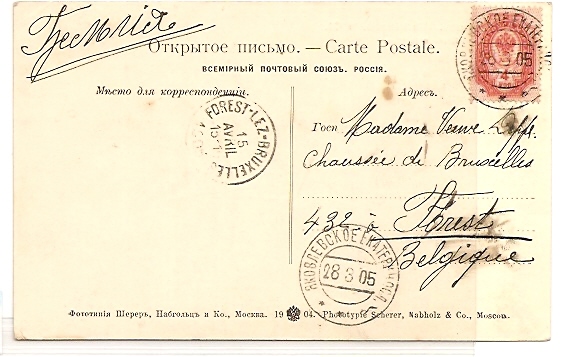 Бельгія
Открытое письмо. — Carte Postale.
ВСЕМІРНЫЙ ПОЧТОВЫЙ СОЮЗЪ. РОССІЯ.
Мѣсто для корреспонденціи.
Адресъ.
FOREST-LEZ-BRUXELLES
15
AVRIL
ЯКОВЛЕВСКОЕ ЕКАТЕР
28 3 05
Госп
Madame Veuve
Chaussée de Bruxelles
432 à Forest
Belgique
ЯКОВЛЕВСКОЕ ЕКАТЕР
28 3 05
Фототипія Шереръ, Набгольцъ и Ко., Москва. 19 04. Phototypie Scherer, Nabholz & Co., Moscou.